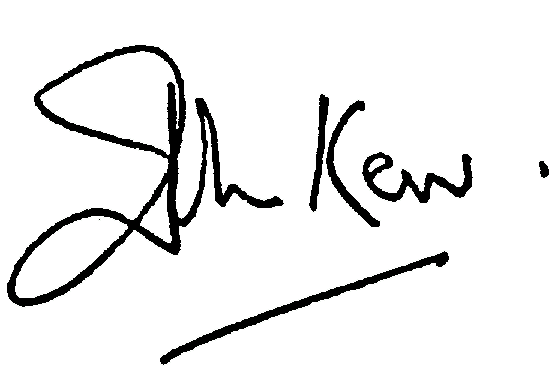 John Kerr.